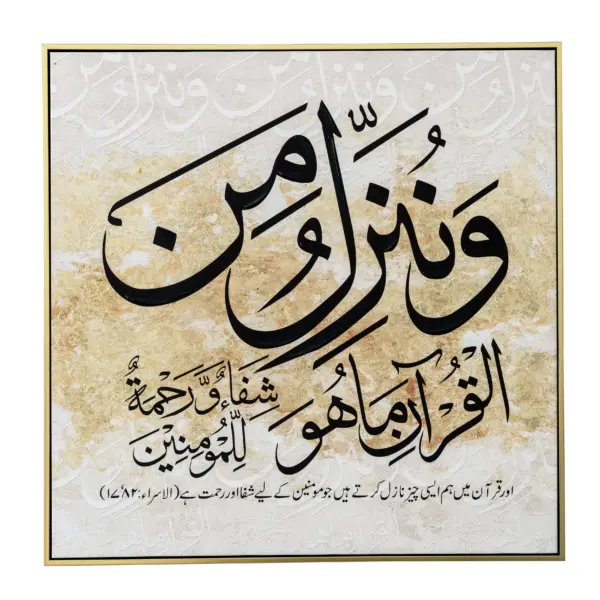 وَنُنَزِّلُ مِنَ
الْقُرْآنِ مَا هُوَ
شِفَاءٌ وَّرَحْمَةٌ
لِّلْمُؤْمِنِيْنَ
اور قرآن میں ہم ایسی چیز نازل کرتے ہیں جو مومنین کے لیے شفا اور رحمت ہے (الاسراء:۱۷:۸۲)